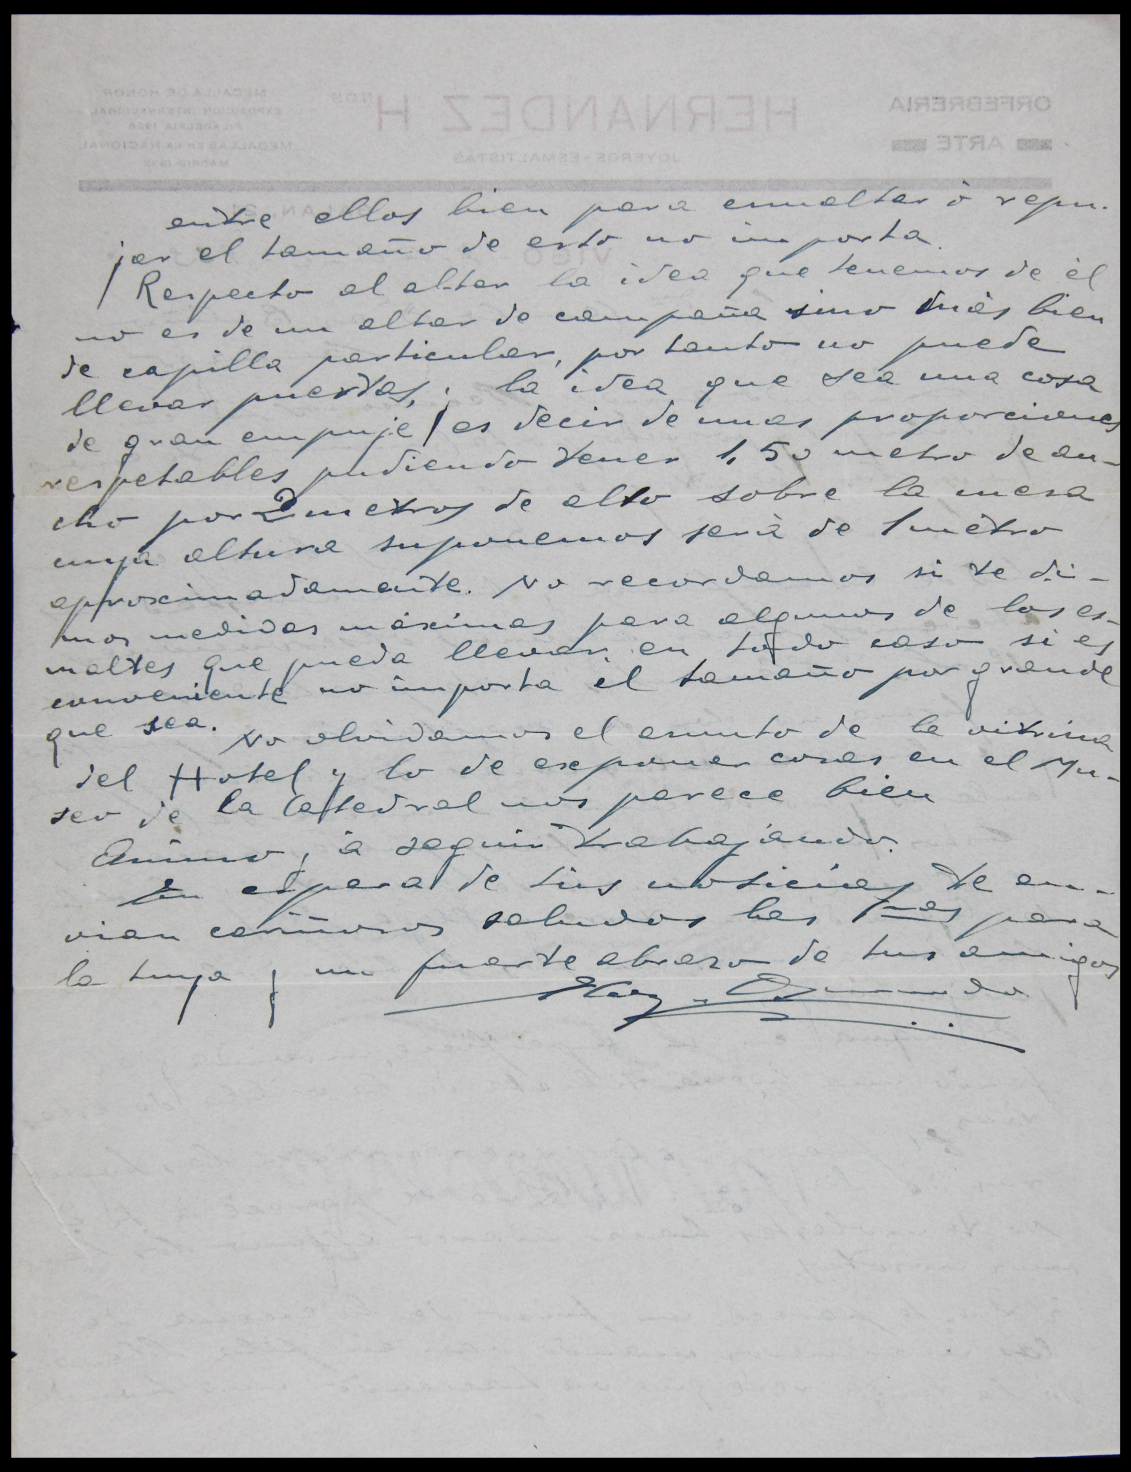 entre ellos bien para esmaltar ó repu-
jar el tamaño de esto no importa.
Respecto al altar la idea que tenemos de él
no es de un altar de campaña sino más bien
de capilla particular, por tanto no puede
llevar puertas, la idea que sea una cosa
de gran empuje, es decir de unas proporciones
respetables pudiendo tener 1,50 metro de an-
cho por 2 metros de alto sobre la mesa
cuya altura suponemos será de 1 metro
aproximadamente. No recordamos si te di-
mos medidas máximas para algunos de los es-
maltes que pueda llevar, en todo caso si es
conveniente no importa el tamaño por grande
que sea.
No olvidamos el asunto de la vitrina
del Hotel y lo de exponer cosas en el Mu-
seo de la Catedral nos parece bien
Animo, á seguir trabajando.
En espera de tus noticias te en-
vian cariñosos saludos las ntas para
la tuya y un fuerte abrazo de tus amigos
Eloy
ORFEBRERIA
ARTE
HERNANDEZ HNOS
JOYEROS - ESMALTISTAS
MEDALLA DE HONOR
EXPOSICION INTERNACIONAL
FILADELFIA 1926
MEDALLAS EN LA NACIONAL
VIGO